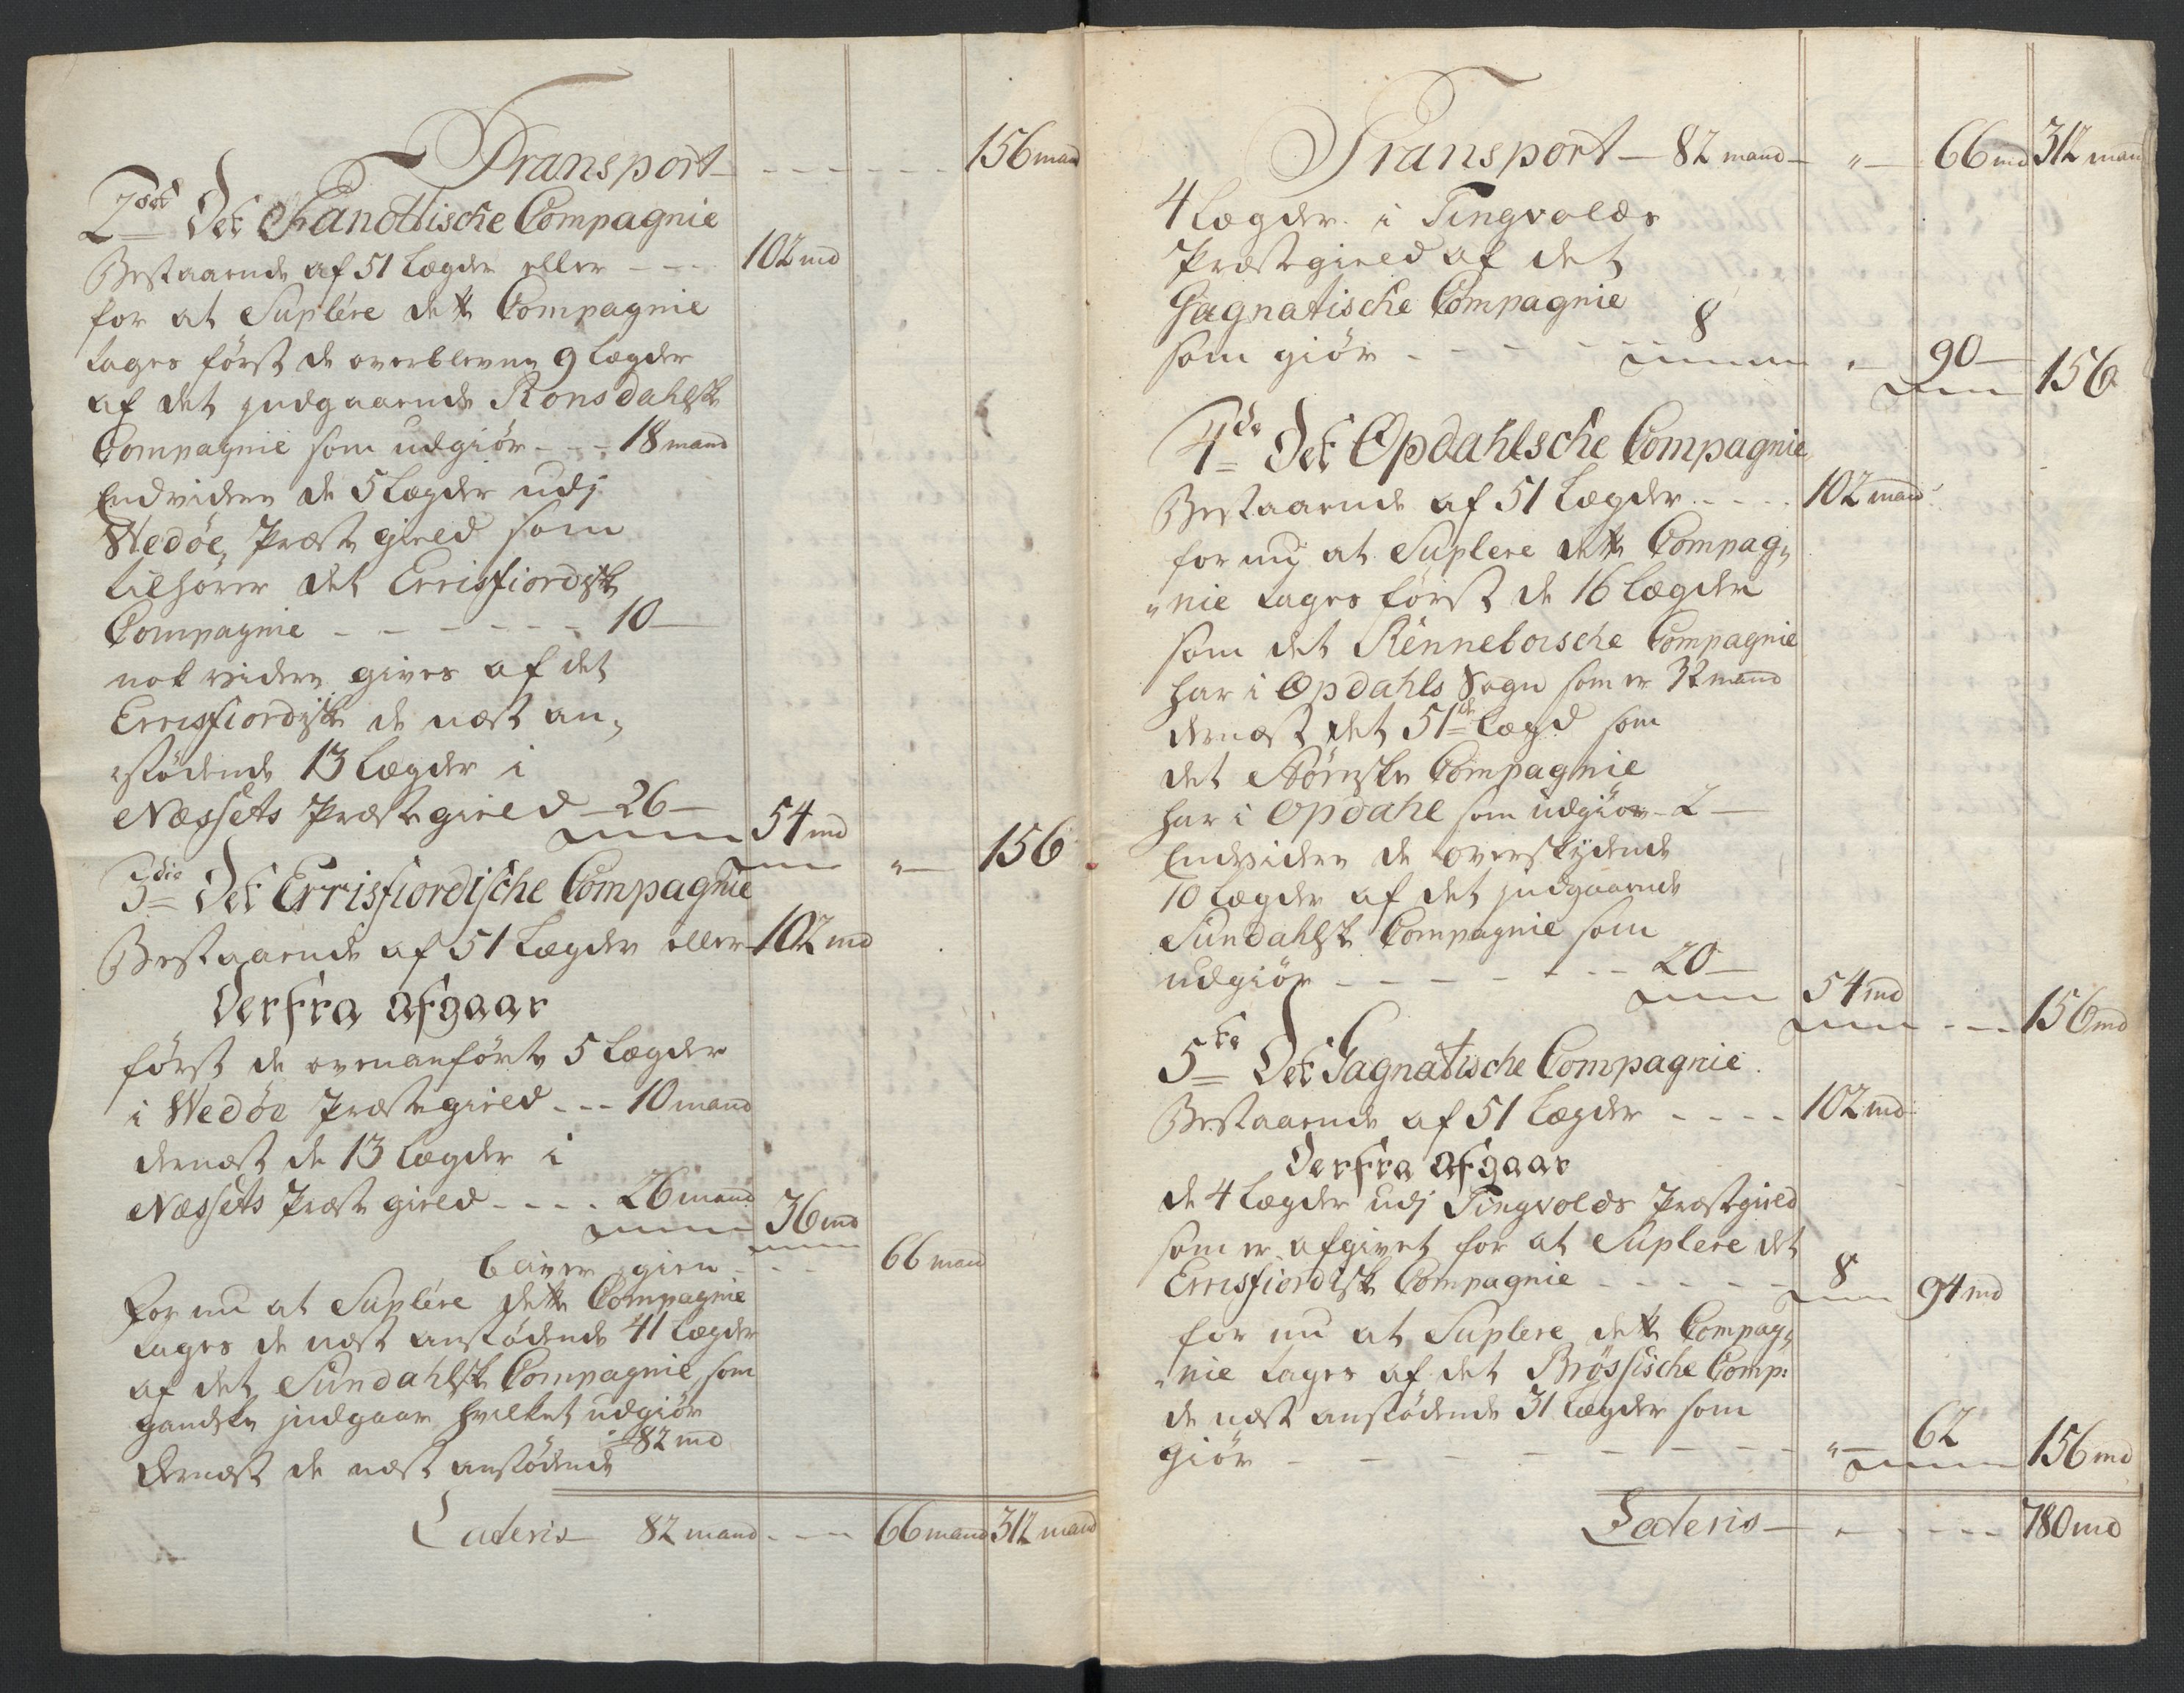 Transport - - - - - - 156 mand
2det Det Fanottische Compagnie
Bestaaende af 51 Lægder eller - - - 102 md
for at Suplére dette Compagnie
tages først de overblevne 9 Lægder
af det indgaaende Romsdahlske
Compagnie som udgiör - - - 18 mand
Endvidere de 5 Lægder udj
Wedöe Præste gield som
tilhører det Errisfiordiske
Compagnie - - - - - - 10 —
nok videre gives af det
Errisfiordiske de næst an„
„stödende 13 Lægder i
Næssets Præste gield — 26 — 54 md „ — 156
3die Det Errisfiordische Compagnie
Bestaaende af 51 Lægder eller 102 md
Derfra afgaar
först de ovenanførte 5 Lægder
i Wedöe Præstegield - - - 10 mand
dernæst de 13 Lægder i
Næssets Præste gield - - - - 26 mand 36 md
bliver igien - - - 66 mand
For nu at Suplére dette Compagnie
tages de næst anstödende 41 Lægder
af det Sundahlske Compagnie, som
gandske indgaar hvilket udgiör
82 md
dernæst de næst anstödende
Lateris — 82 mand - - - 66 mand 312 mand
Transport — 82 mand — „ — 66 md 312 mand
4 Lægder i Tingvolds
Præstegield af det
Gagnatische Compagnie
som giör - - - - - 8 „ — 90 — 156
4de Det Opdahlsche Compagnie
Bestaaende af 51 Lægder - - - - 102 mand
for nu at Suplere dette Compag„
„nie tages först de 16 Lægder
som det Renneboische Compagnie
har i Opdahls Sogn som er 32 mand
dernæst det 51de Lægd som
det Störenske Compagnie
har i Opdahl som udgiör - 2 —
Endvidere de overskydende
10 Lægder af det indgaaende
Sundahlske Compagnie som
udgiör - - - - - - - 20 — 54 md - - - 156 md
5te Det Gagnatische Compagnie.
Bestaaende af 51 Lægder - - - - 102 md
Derfra afgaar
de 4 Lægder udj Tingvolds Præstegield
som er afgivet for at Suplere det
Errisfiordiske Compagnie - - - - - 8 94 md
for nu at Suplere dette Compag„
„nie tages af det Brössische Comp:
de næst anstödende 31 Lægder som
giör - - - - - - - „ — 62 156 md
Lateris — „ - - - - 780 md